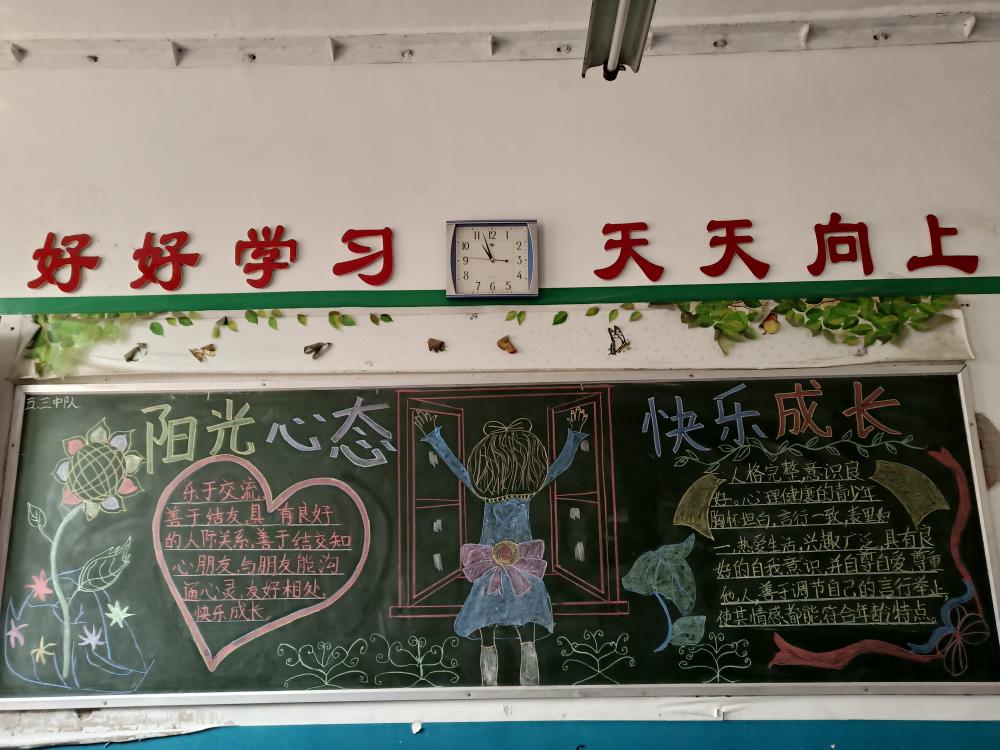 好好学习 天天向上
11 12 1
10 2
9 3
8 4
7 6 5
五三中队
阳光心态
乐于交流,
善于结友,具有良好
的人际关系,善于结交知
心朋友,与朋友能沟
通心灵,友好相处,
快乐成长。
快乐成长
人格完整,意识良
好。心理健康的青少年
胸怀坦白,言行一致,表里如
一,热爱生活,兴趣广泛,具有良
好的自我意识,并自尊自爱,尊重
他人,善于调节自己的言行举止,
使其情感都能符合年龄特点。